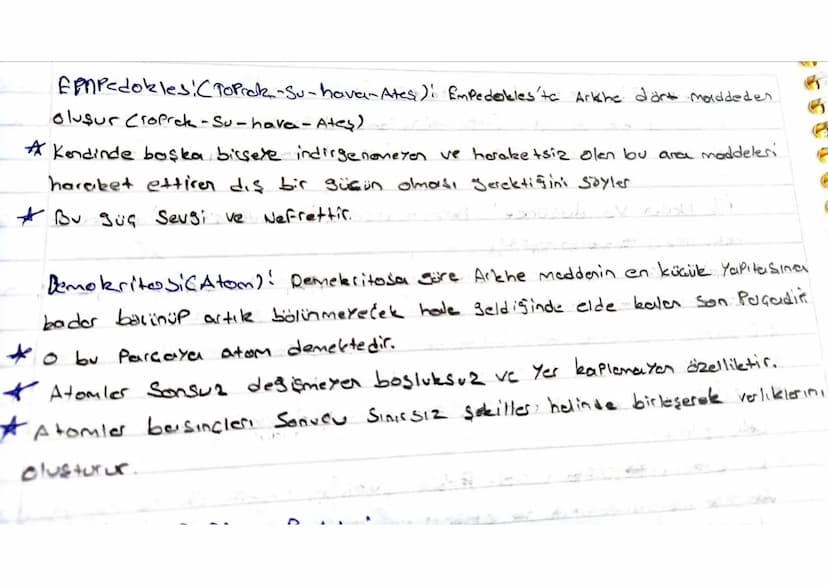 Empedokles:(Toprak-Su-hava-Ateş): Empedokles'te Arkhe dört maddeden
oluşur (Toprak-Su-hava-Ateş)
☆ Kendinde başka birşeye indirgenemeyen ve hareketsiz olan bu ana maddeleri
hareket ettiren dış bir gücün olması gerektiğini söyler
☆ Bu güç Sevgi ve Nefrettir.
Demokritos:(Atom): Demokritosa göre Arkhe maddenin en küçük yapıtaşına
kadar bölünüp artık bölünmeyecek hale geldiğinde elde kalan son Parçadır
☆ O bu Parçaya atom demektedir.
☆ Atomlar Sonsuz değişmeyen boşluksuz ve yer kaplamayan özelliktir.
☆ Atomlar basınçları Sonucu Sınırsız şekiller halinde birleşerek varlıklarını
oluşturur.